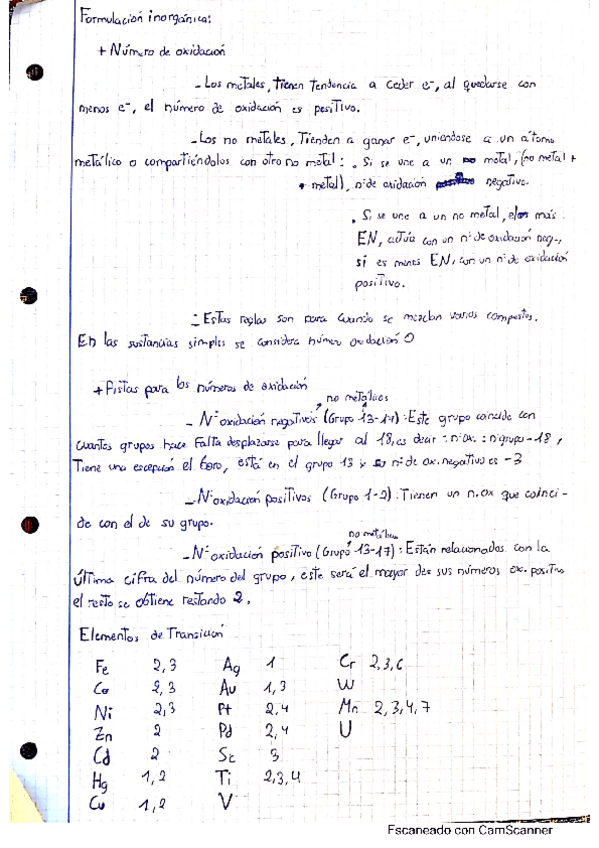 Formulación inorgánica:
+ Número de oxidación
- Los metales, tienen tendencia a ceder e-, al quedarse con
menos e-, el número de oxidación es positivo.
- Los no metales, Tienden a ganar e-, uniendose a un átomo
metálico o compartiéndolos con otro no metal: . Si se une a un metal, (no metal +
+ metal), nº de oxidación negativo.
. Si se une a un no metal, el más
EN, actúa con un nº de oxidación neg-,
si es menos EN, con un nº de oxidación
positivo.
- Estas reglas son para cuando se mezclan varios compestos.
En las sustancias simples se considera número oxidación 0
+ Pistas para los números de oxidación
no metálicos
- Nº oxidación negativos (Grupo 13-17): Este grupo coincide con
cuantos grupos hace falta desplazarse para llegar al 18, es decir: nºox. : nºgrupo - 18,
Tiene una excepción el boro, está en el grupo 13 y su nº de ox. negativo es -3
- Nºoxidación positivos (Grupo 1-2): Tienen un n.ox que coinci-
de con el de su grupo.
no metálicos
- Nº oxidacion positivo (Grupo 13-17): Están relacionados con la
última cifra del número del grupo, este será el mayor de sus números ox. positivo
el resto se obtiene restando 2.
Elementos de Transición
Fe 2,3 Ag 1 Cr 2,3,6
Co 2,3 Au 1,3 W
Ni 2,3 Pt 2,4 Mn 2,3,4,7
Zn 2 Pd 2,4 U
Cd 2 Sc 3
Hg 1,2 Ti 2,3,4
Cu 1,2 V
Escaneado con CamScanner